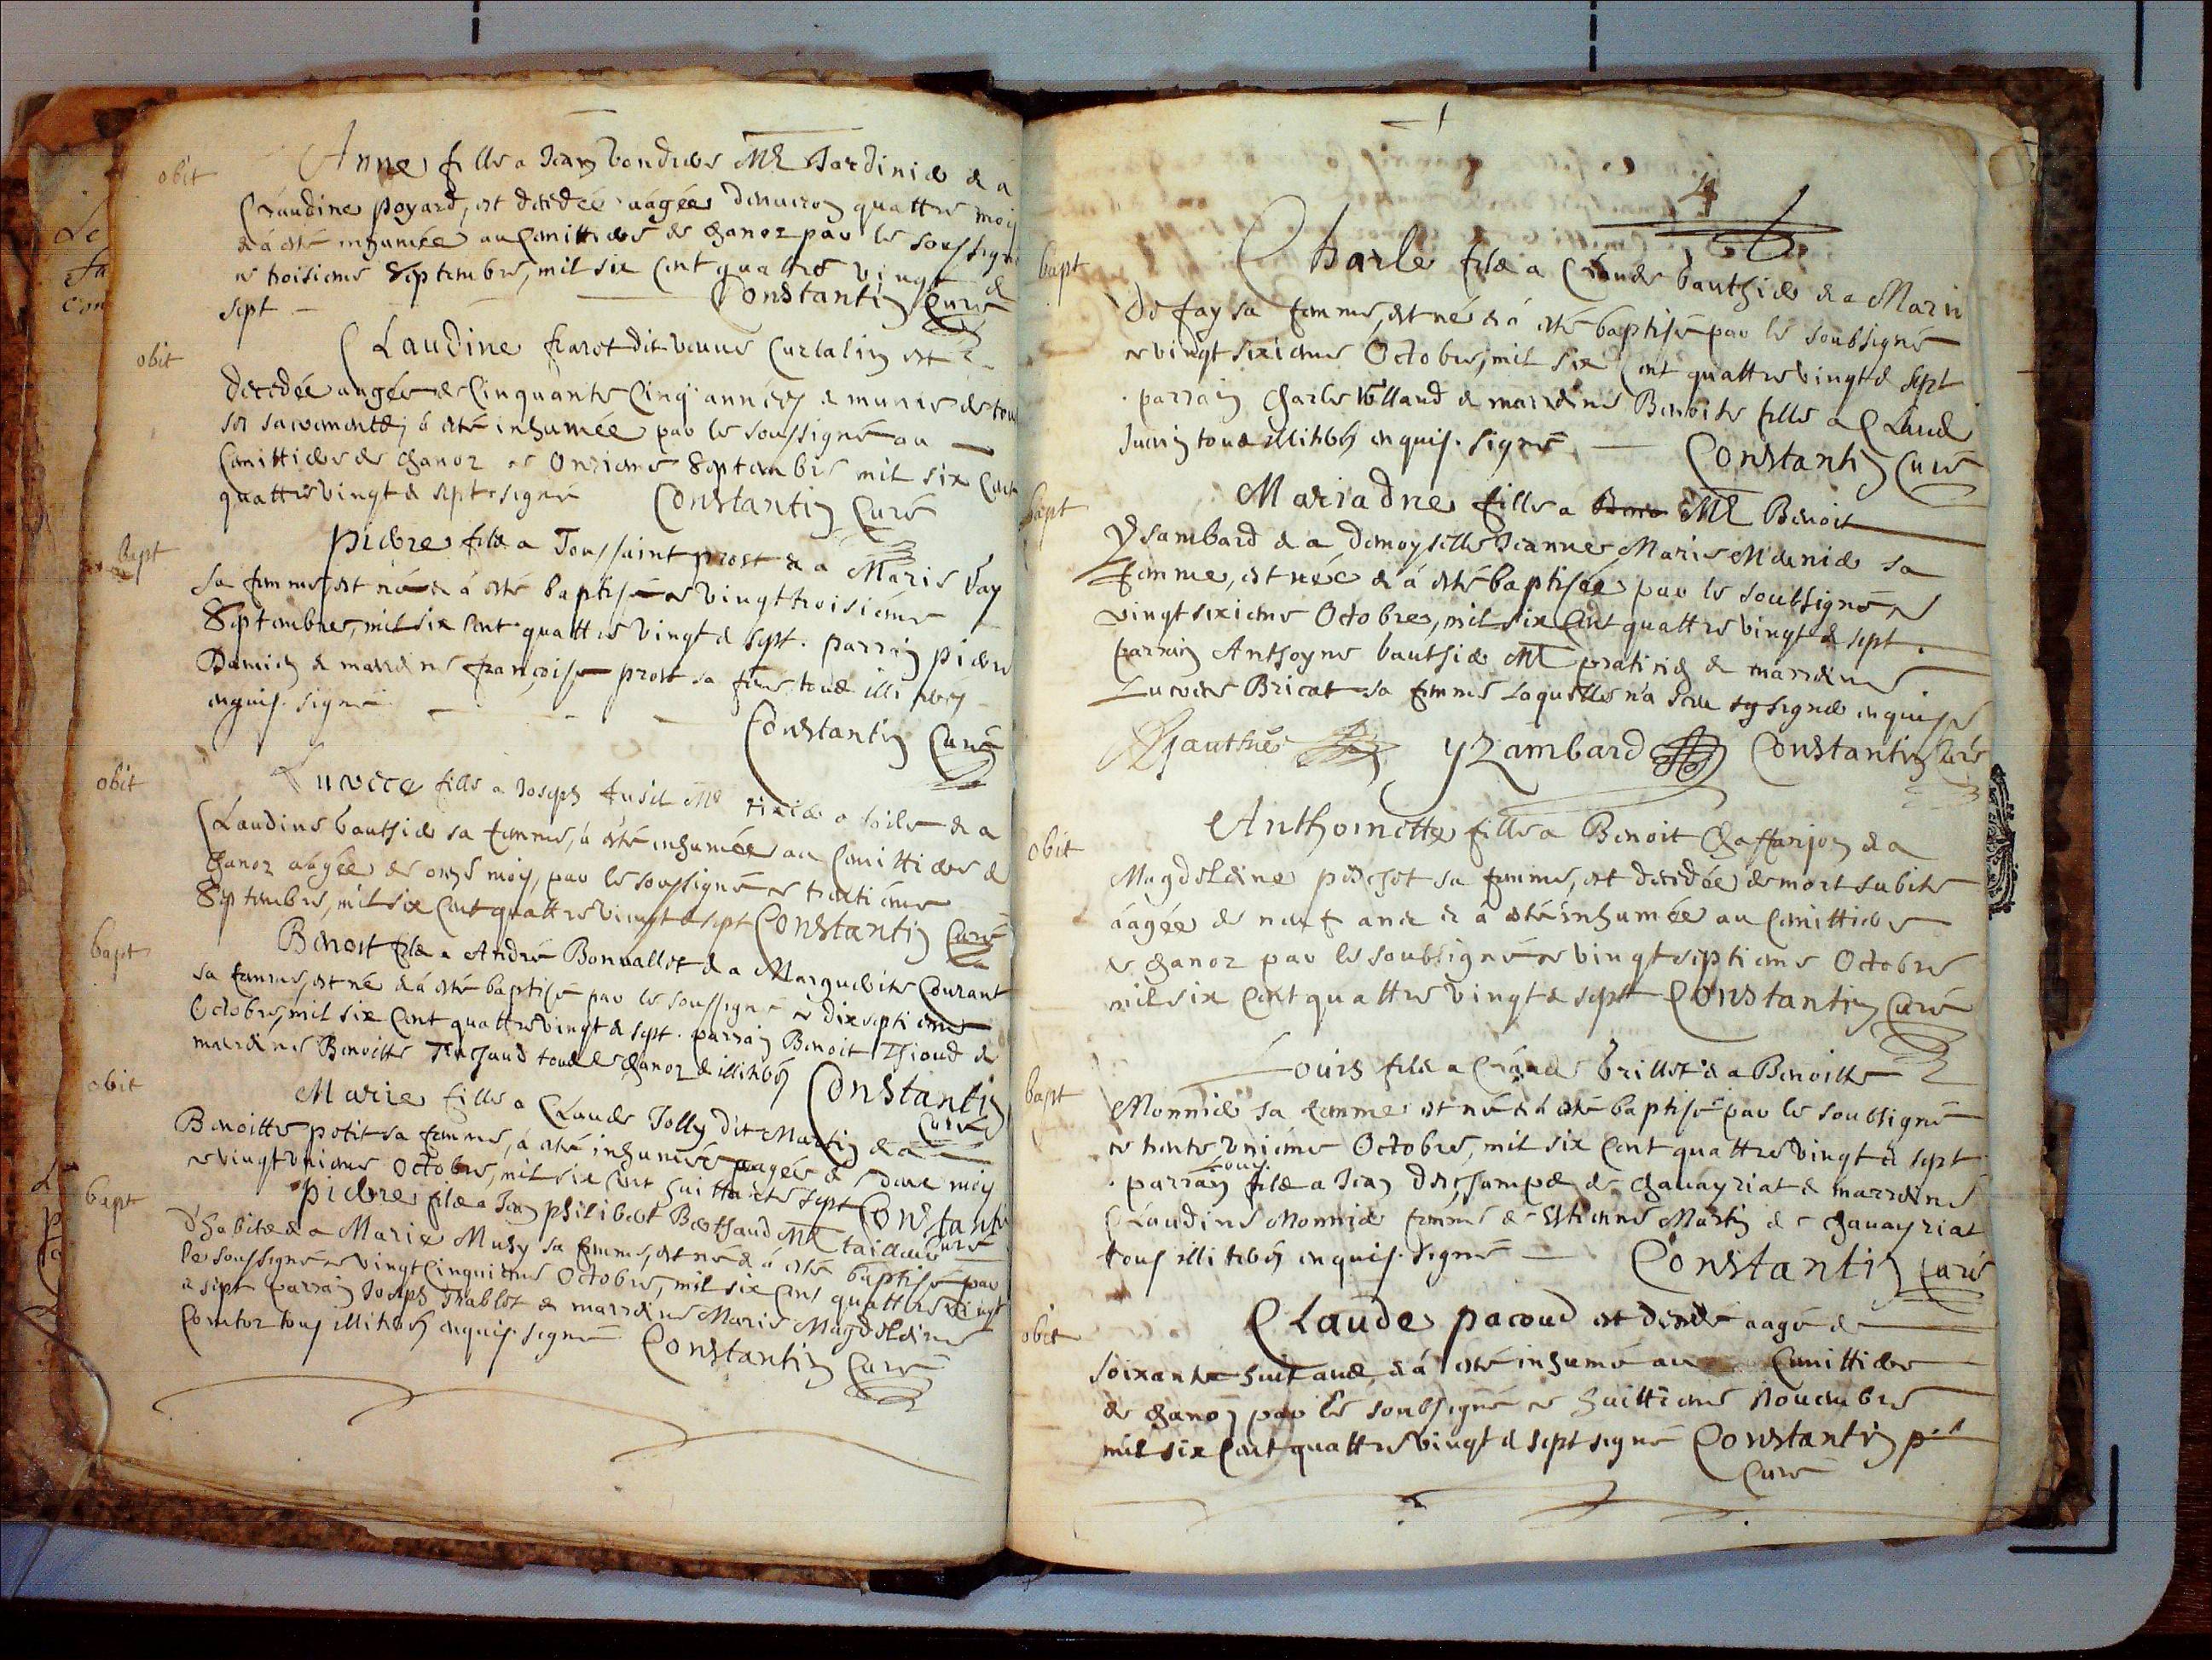 obit
Anne fille a Jean Vondiere Mre Jardinier & a
Claudine poyard, est decedée aagée denviron quattre mois
& á esté inhumée au Cimittiere de Chanoz par le soussigné
ce troisieme Septembre, mil six Cent quattre vingt &
sept — Constantin Curé
obit
Claudine dit veuve est
decedée aagée de Cinquante Cinq années & munie de tous
ses sacrements á esté inhumée par le soussigné au
Cimittiere de Chanoz ce Onzieme Septembre mil six Cent
quattre vingt & sept signé Constantin Curé
Bapt
Pierre fils a Toussaint prost & a Marie Vay
sa femme est né & á esté baptisé ce vingt troisieme
Septembre, mil six Cent quattre vingt & sept. parrain pierre
Damien & marrene françoise prost sa tous illiterés
enquis. signé
Constantin Curé
obit
Lucrece fille a Joseph fusil Mre tixier a toile & a
Claudine Gauthier sa femme, á esté inhumée au Cimittiere de
Chanoz aagée de onze mois, par le soussigné ce trentieme
Septembre, mil six Cent quattre vingt & sept Constantin Curé
bapt
Benoist fils a André Bonvallet & a Marguerite Courant
sa femme, est né & á esté baptisé par le soussigné ce dix septieme
Octobre, mil six Cent quattre vingt & sept. parrain Benoit Thioud &
marrene Benoitte tous de Chanoz & illiterés Constantin
Curé
obit
Marie fille a Claude Jolly dit Martin & a
Benoitte petit sa femme, á esté inhumée aagée de doze mois
ce vingt unieme Octobre, mil six Cent huittante sept Constantin
Curé
bapt
Pierre fils a Jean philibert Berthaud Mre tailleur
d'habits & a Marie Muzy sa femme, est né & á esté baptisé par
le soussigné ce vingt Cinquieme Octobre, mil six Cent quattre vingt
& sept parrain Joseph Trablet & marrene Marie Magdeleine
Comtet tous illiterés enquis. signé Constantin Curé
4
bapt
Charle fils a Claude Gauthier & a Marie
De fay sa femme, est né & á esté baptisé par le soubsigné
ce vingt sixieme Octobre, mil six Cent quattre vingt & sept
parrain Charle & marrene Benoite fille a Claude
Juenin tous illiterés enquis. signé — Constantin Curé
bapt
Mariadne fille a Mre Benoit
Ysambard & a Demoyselle Jeanne Marie Meunier sa
femme, est née & á esté baptisée par le soubsigné ce
vingt sixieme Octobre, mil six Cent quattre vingt & sept.
parrain Anthoyne Gauthier Mre praticien & marrene
Lucrece Bricat sa femme laquelle n'a sceu signer enquise
AGauthier yzambard Constantin Curé
obit
Anthoinette fille a Benoit Chaffanjon & a
Magdeleine pochet sa femme, est decedée de mort subite
áagée de neuf ans & á esté inhumée au Cimittiere
de Chanoz par le soubsigné ce vingt septieme Octobre
mil six Cent quattre vingt & sept Constantin Curé
bapt
Louis fils a Claude brillet & a Benoitte
Monnier sa femme est né & á esté baptisé par le soubsigné
ce trente unieme Octobre, mil six Cent quattre vingt & sept
parrain Louis fils a Jean Deschamps de Chavayriat & marrene
Claudine Monnier femme de Estienne Martin de Chavayriat
tous illiterés enquis. signé — Constantin Curé
obit
Claude pacoud est decedé aagé de
soixante huit ans, & á esté inhumé au Cimittiere
de Chanoz par le soubsigné ce huittieme Novembre
mil six Cent quattre vingt & sept signé Constantin
Curé